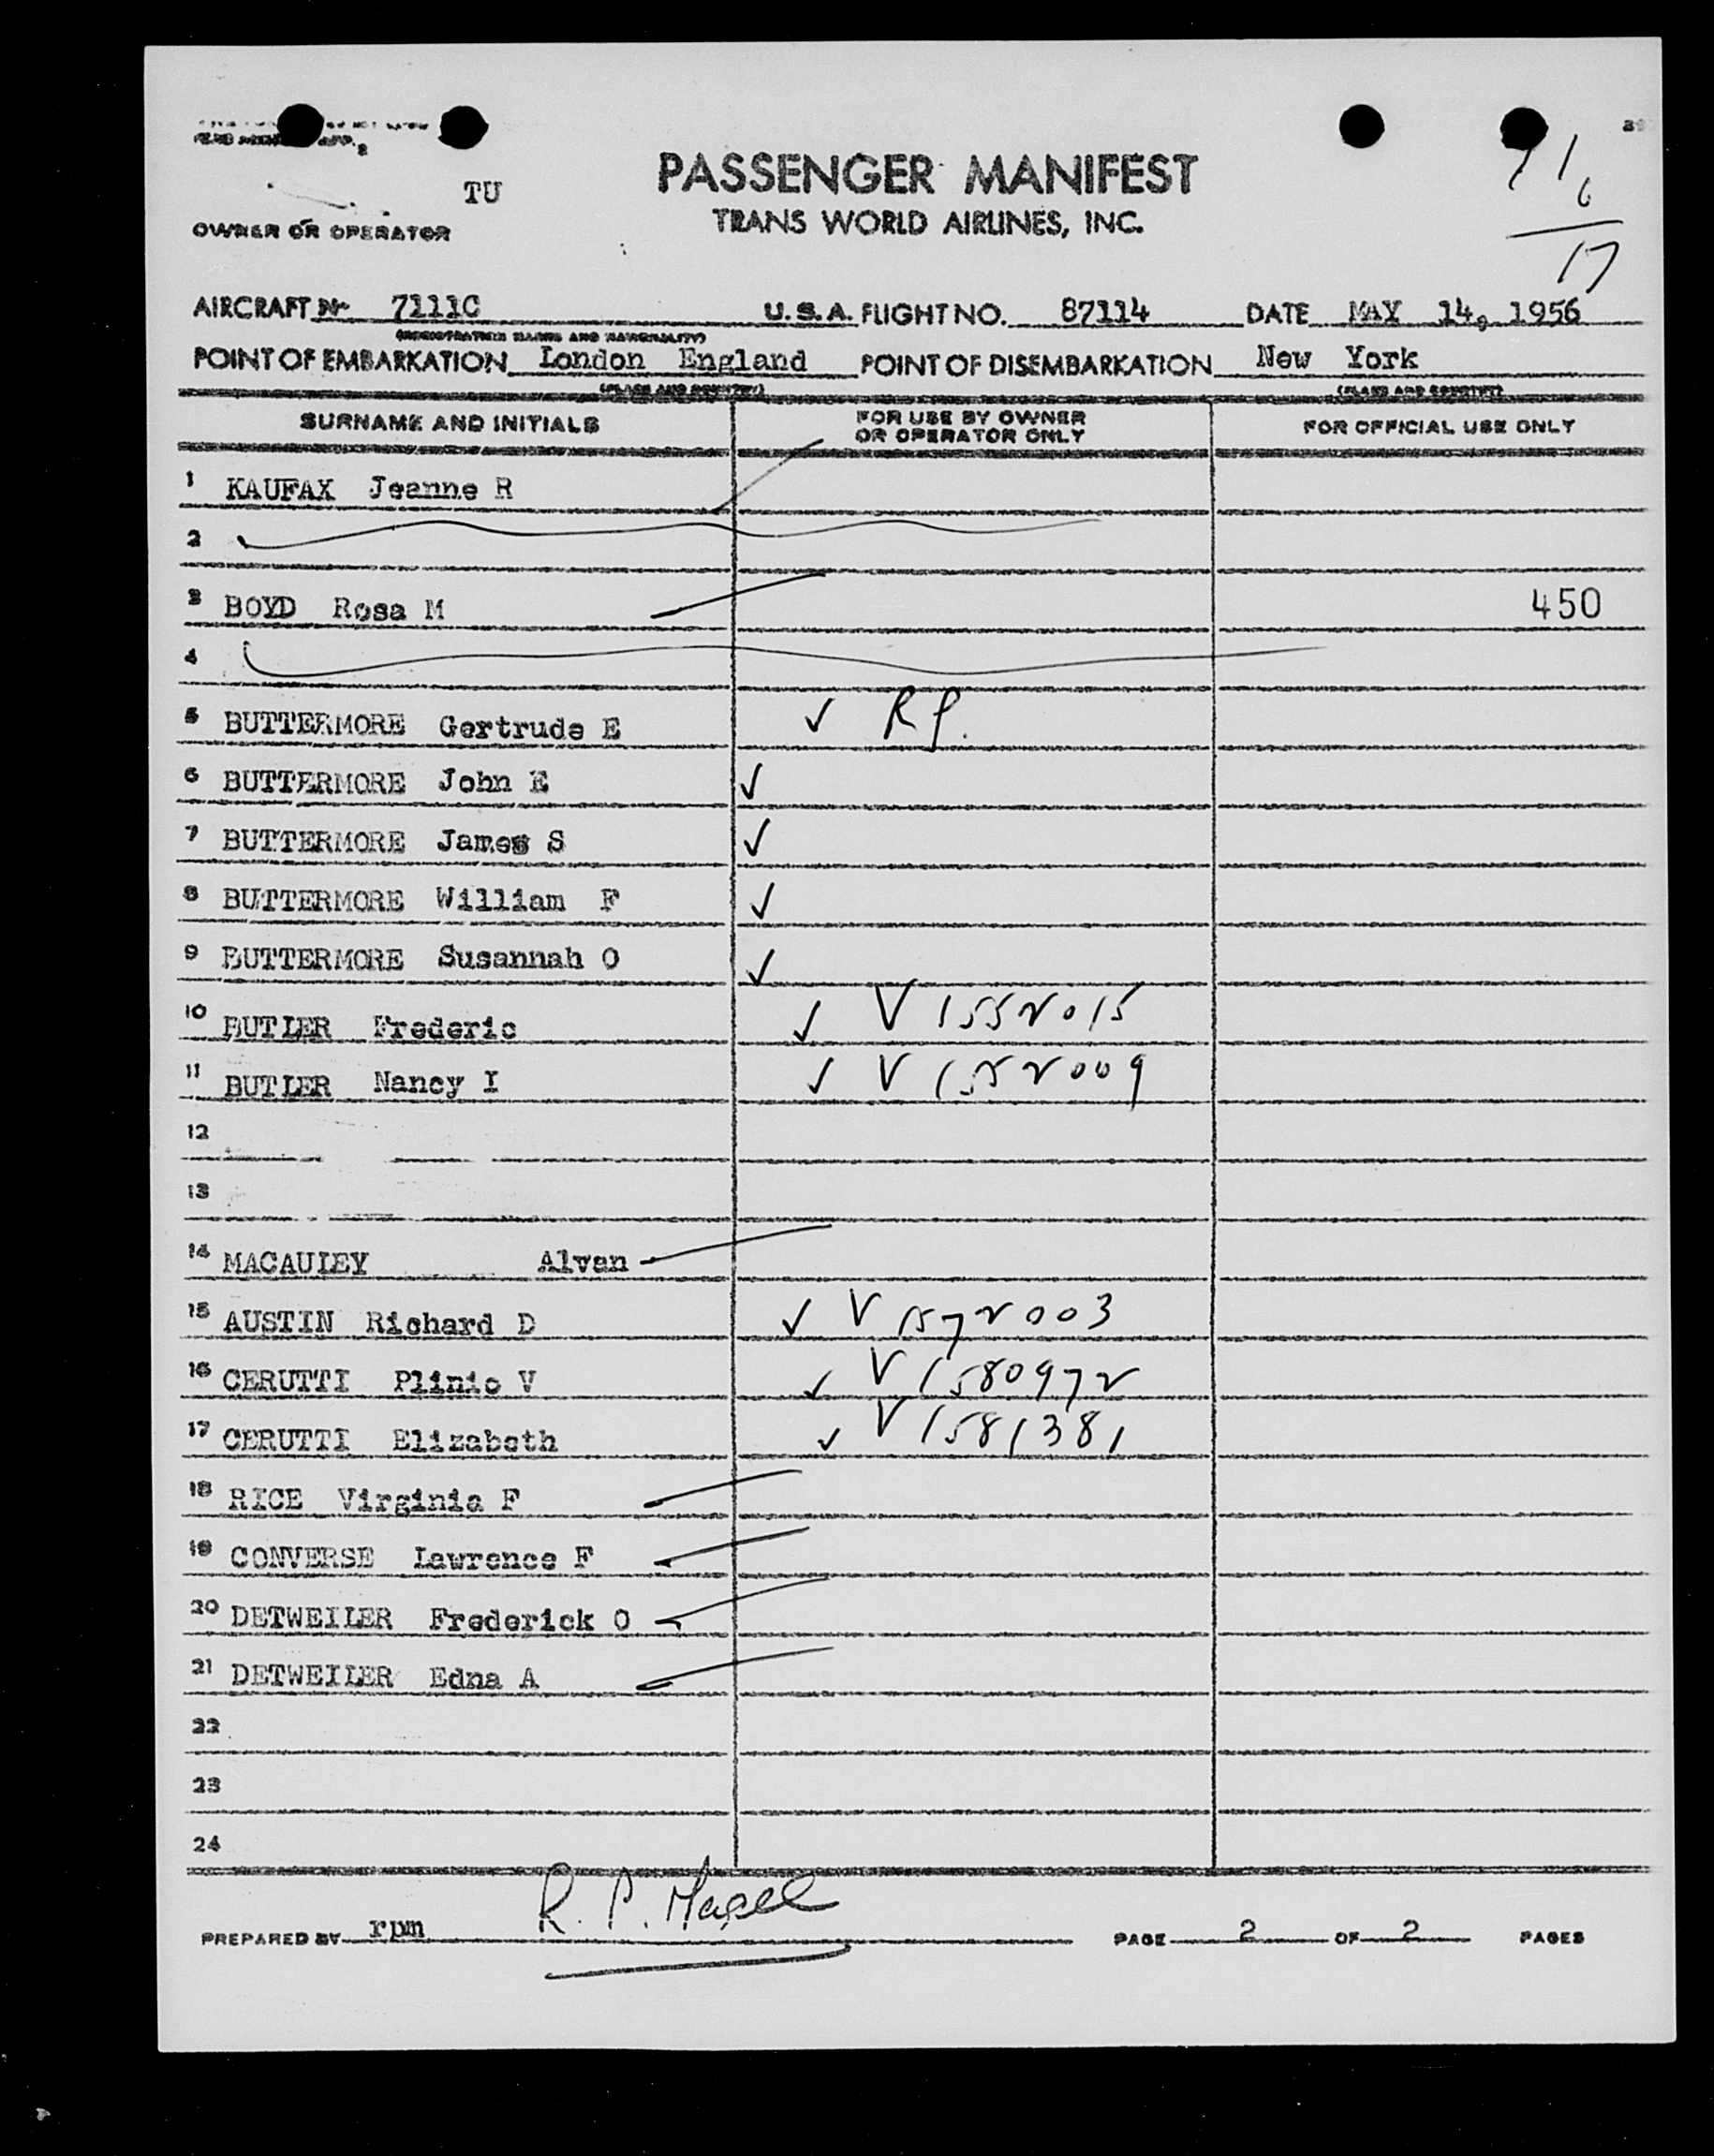 TU
PASSENGER MANIFEST
TRANS WORLD AIRLINES, INC.
OWNER OR OPERATOR
17
AIRCRAFT Nr 7111C U.S.A. FLIGHT NO. 87114 DATE MAY 14, 1956
POINT OF EMBARKATION London England POINT OF DISEMBARKATION New York
(PLACE AND COUNTRY) (PLACE AND COUNTRY)
SURNAME AND INITIALS FOR USE BY OWNER OR OPERATOR ONLY FOR OFFICIAL USE ONLY
1 KAUFAX Jeanne R
2
3 BOYD Rosa M 450
4
5 BUTTERMORE Gertrude E ✓ RP.
6 BUTTERMORE John E ✓
7 BUTTERMORE James S ✓
8 BUTTERMORE William F ✓
9 BUTTERMORE Susannah O ✓
10 BUTLER Frederic ✓ V 1552015
11 BUTLER Nancy I ✓ V 1552009
12
13
14 MACAULEY Alvan
15 AUSTIN Richard D ✓ V 1572003
16 CERUTTI Plinio V ✓ V 1580972
17 CERUTTI Elizabeth ✓ V 1581381
18 RICE Virginia F
19 CONVERSE Lawrence F
20 DETWEILER Frederick O
21 DETWEILER Edna A
22
23
24
PREPARED BY rpm R. P. PAGE 2 OF 2 PAGES